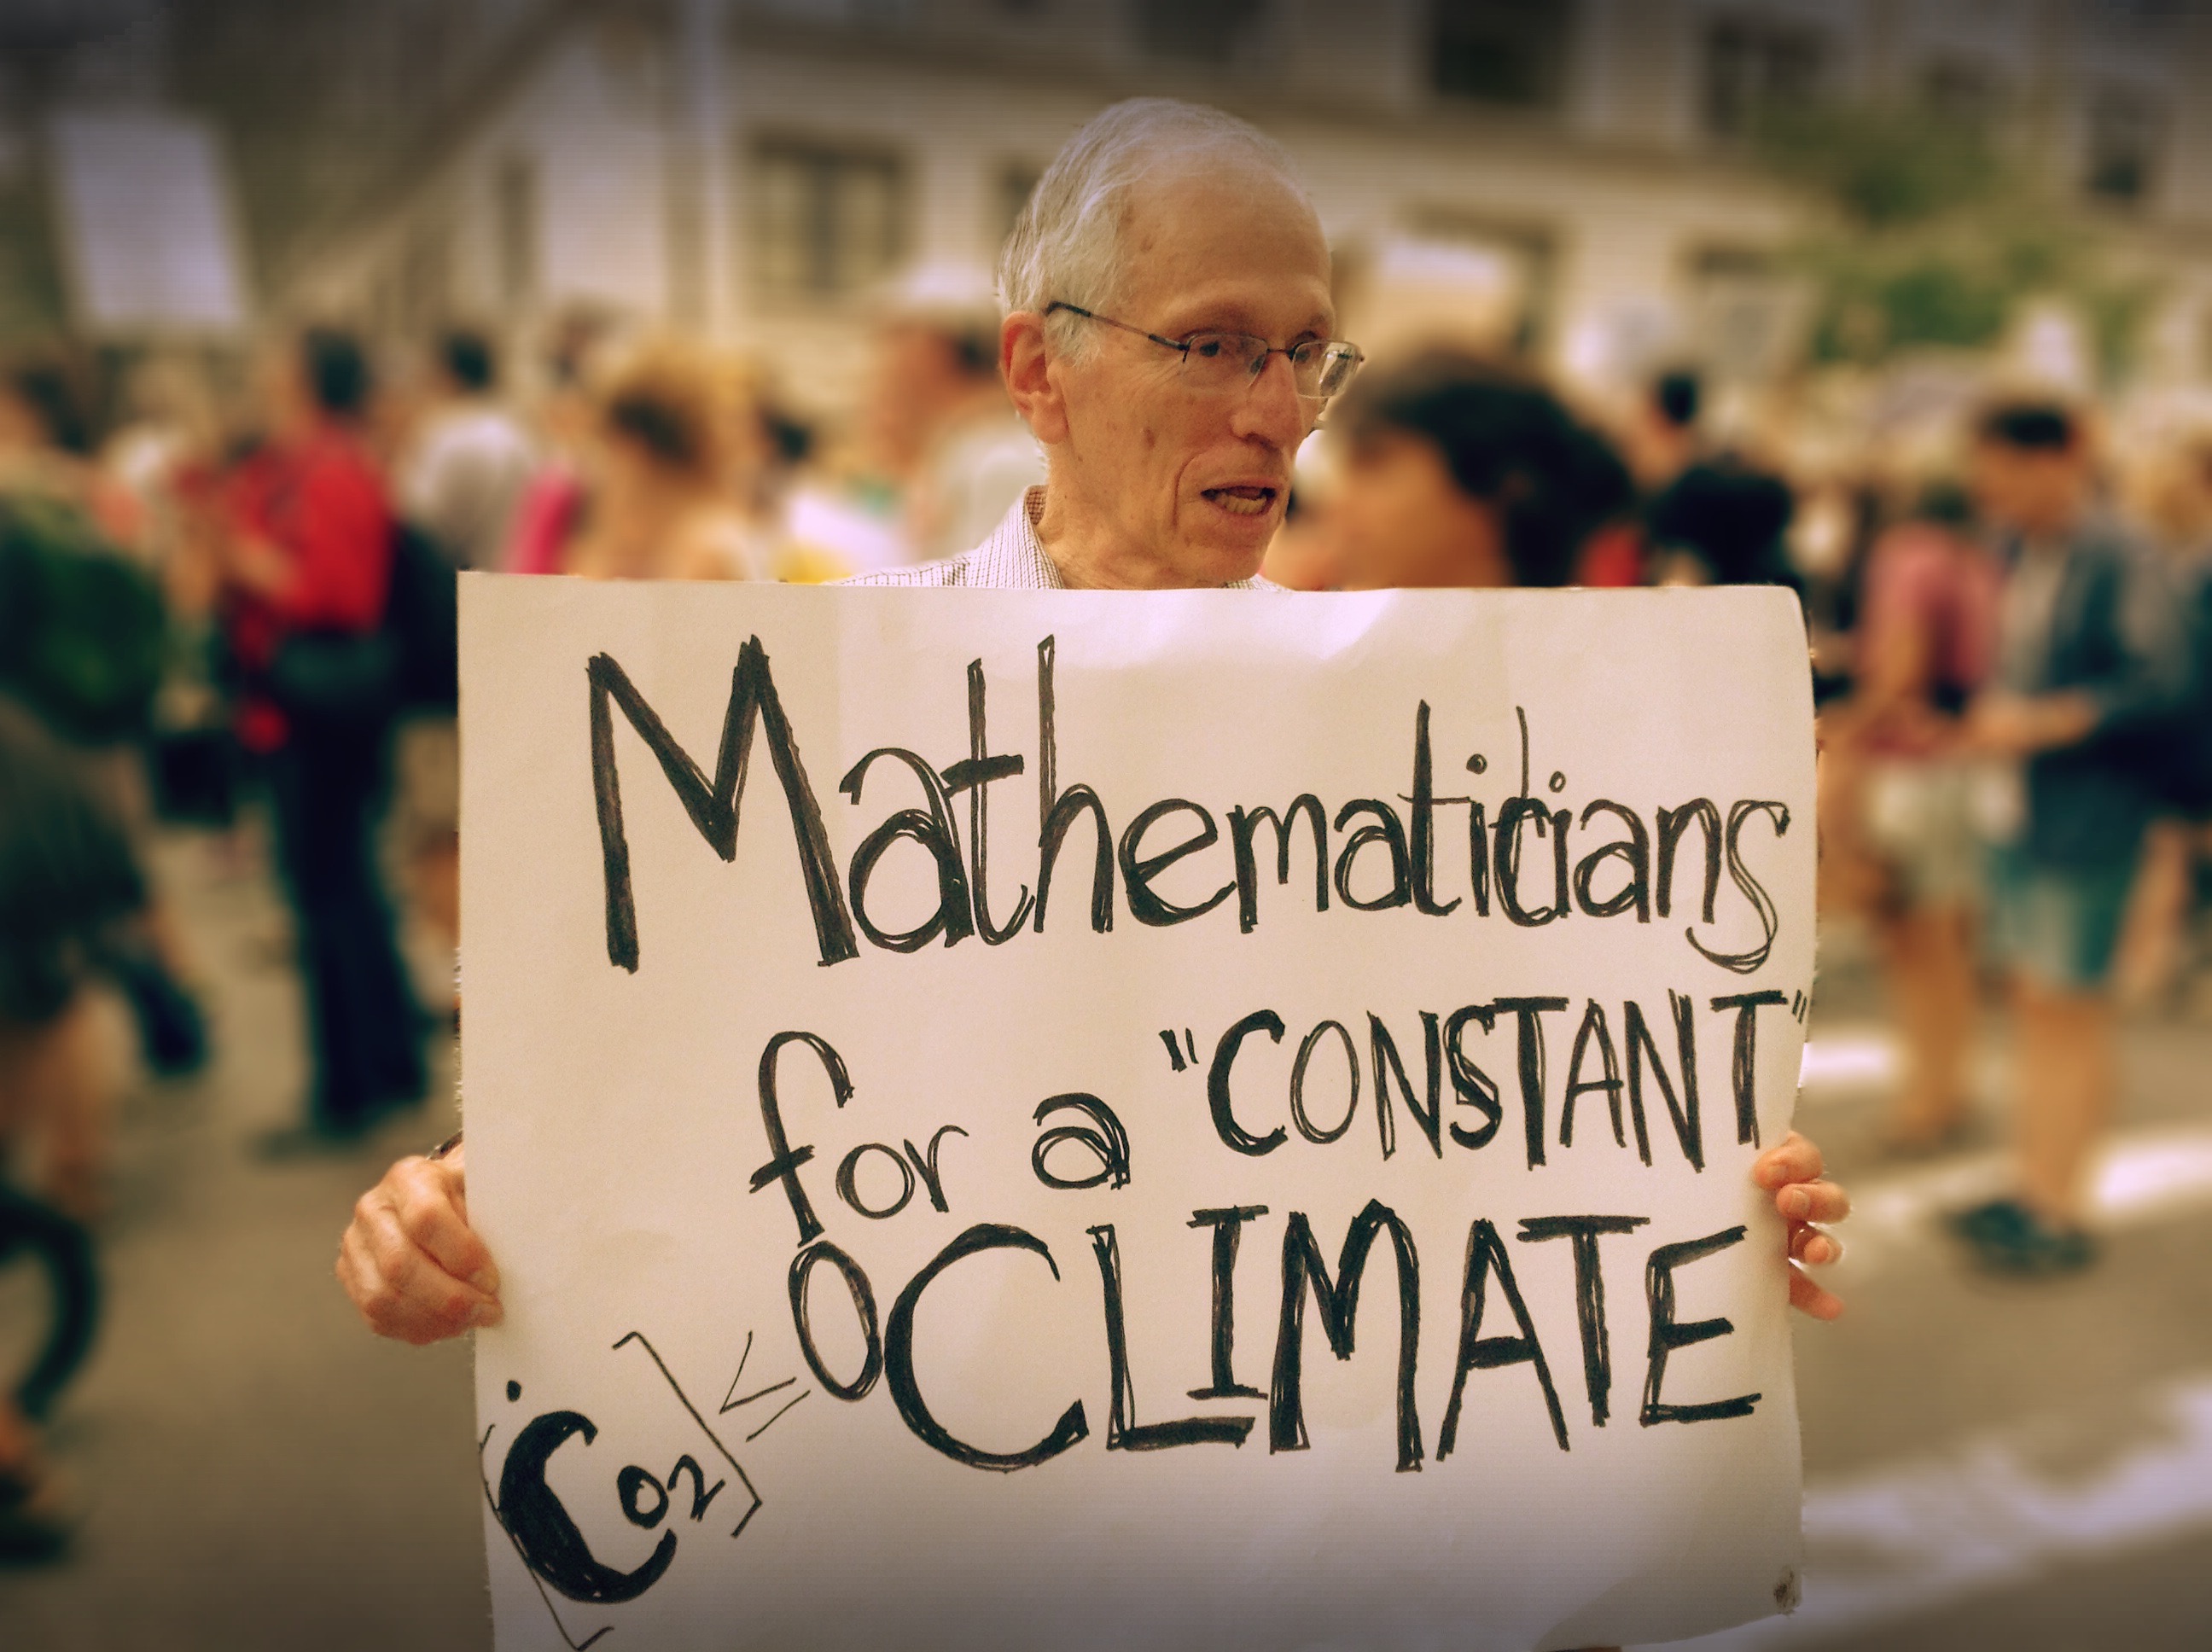 Mathematicians
for a "CONSTANT"
CLIMATE
[Ċo2] ≤ 0